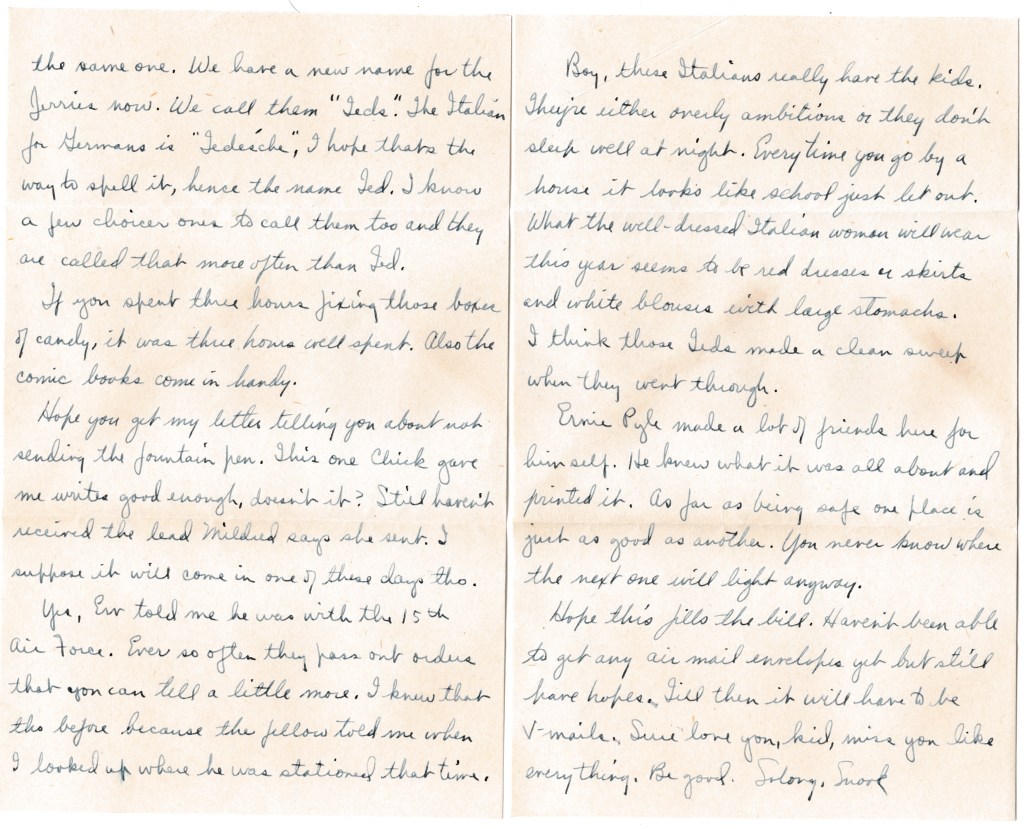 the same one. We have a new name for the
Jerries now. We call them "Teds". The Italian
for Germans is "Tedésche", I hope thats the
way to spell it, hence the name Ted. I know
a few choicer ones to call them too and they
are called that more often than Ted.
If you spent three hours fixing those boxes
of candy, it was three hours well spent. Also the
comic books come in handy.
Hope you get my letter telling you about not
sending the fountain pen. This one Chick gave
me writes good enough, doesn't it? Still haven't
received the lead Mildred says she sent. I
suppose it will come in one of these days tho.
Yes, Erv told me he was with the 15th
Air Force. Ever so often they pass out orders
that you can tell a little more. I knew that
tho before because the fellow told me when
I looked up where he was stationed that time.
Boy, these Italians really have the kids.
They're either overly ambitious or they don't
sleep well at night. Everytime you go by a
house it looks like school just let out.
What the well-dressed Italian woman will wear
this year seems to be red dresses or skirts
and white blouses with large stomachs.
I think those Teds made a clean sweep
when they went through.
Ernie Pyle made a lot of friends here for
himself. He knew what it was all about and
printed it. As far as being safe one place is
just as good as another. You never know where
the next one will light anyway.
Hope this fills the bill. Haven't been able
to get any air mail envelopes yet but still
have hopes. Till then it will have to be
V-mails. Sure love you, kid, miss you like
everything. Be good. Solong,